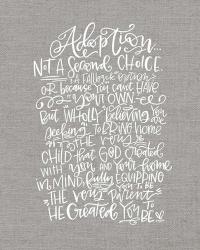 Adoption...
NOT A Second CHOICE.
A FALLBACK
OR because You can't HAVE
Your OWN
But WHOLLY believing You are
Seeking TO BRING HOME
THE VERY
CHILD THAT GOD CREATED
WITH you AND YOUR HOME
IN MIND, fully EQUIPPING
YOU TO BE
THE VERY PARENT
He Created You TO
BE